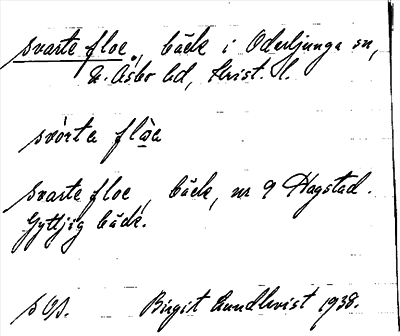 svarte floe, bäck i Oderljunga sn,
N. Åsbo hd, Krist. l.
svò́rta flòa
svarte floe, bäck, nr 9 Hagstad.
Gyttjig bäck.
Birgit Lundkvist 1938.